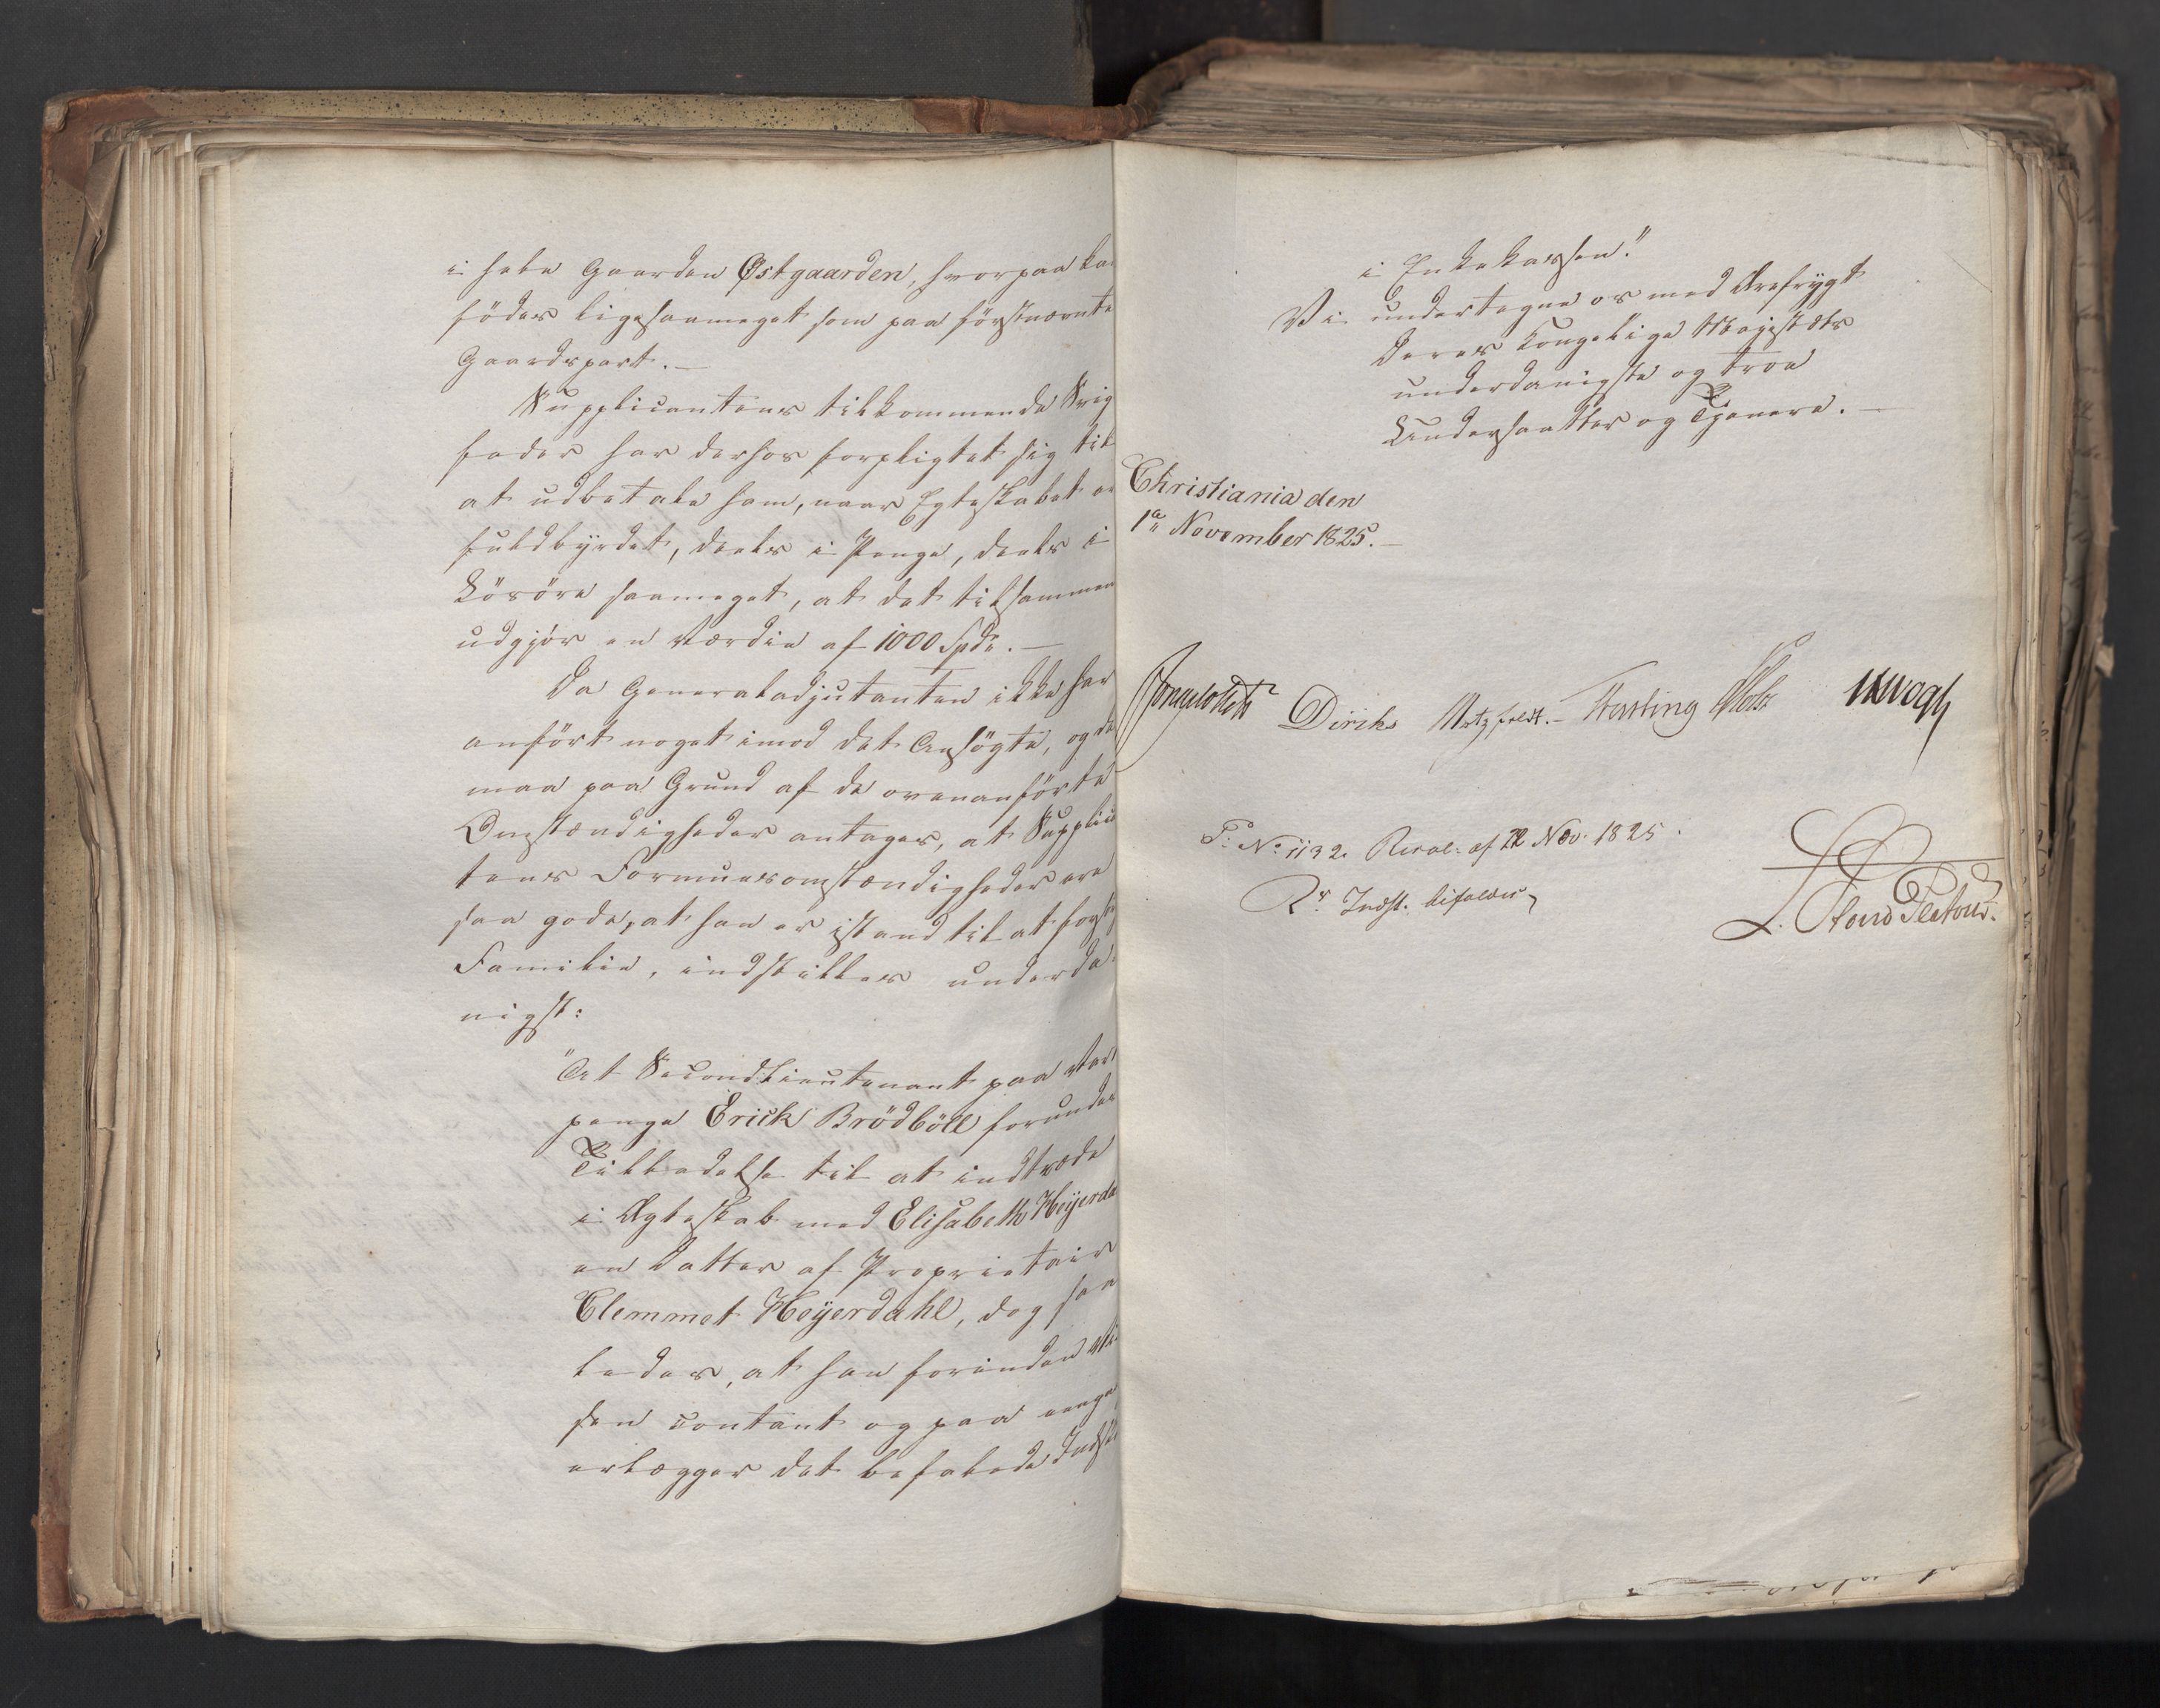 i hele Gaarden Østgaarden, hvorpaa
födes ligesaameget som paa förstnævnte
Gaardspart. —
Supplicantens tilkommende Svig
fader har derhos forpligtet sig til
at udbetale ham, naar Egteskabet er
fuldbyrdet, deels i Penge, deels i
Lösöre saameget, at det tilsammen
udgjör en Værdie af 1000 Spd. —
Da Generaladjutanten ikke har
anfört noget imod det Ansögte, og det
maa paa Grund af de ovenanförte
Omstændigheder antages, at Supplic
tens Formuesomstændigheder ere
saa gode, at han er istand til at
Familie, indstilles underda-
nigst:
"At Secondlieutenant paa Vart
penge Erick Brödböll forundes
Tilladelse til at indtræde
i Ægteskab med Elisabeth Heyerda
en Datter af Proprietair
Clemmet Heyerdahl, dog saa
ledes, at han forinden
sen contant og paa eengang
erlægger det befalede Indsk
i Enkekassen."
Vi undertegne os med Ærefrygt
Deres Kongelige Majestæts
underdanigste og troe
Undersaatter og Tjenere. —
Christiania den
1ª November 1825. —
Diriks Motzfeldt. — Fasting JHVogt
P: No 1132. Resol: af 22 Nov. 1825.
Rs. Indst. bifaldes